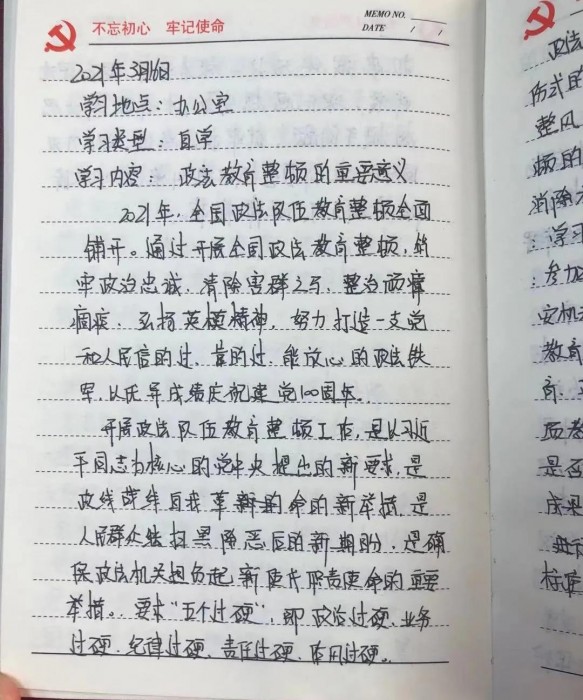 不忘初心 牢记使命
MEMO NO.
DATE / /
2021年3月16日
学习地点：办公室
学习类型：自学
学习内容：政法教育整顿的重要意义
2021年，全国政法队伍教育整顿全面
铺开。通过开展全国政法教育整顿，筑
牢政治忠诚，清除害群之马，整治顽瘴
痼疾，弘扬英模精神，努力打造一支党
和人民信的过、靠的过、能放心的政法铁
军，以优异成绩庆祝建党100周年。
开展政法队伍教育整顿工作，是以习近
平同志为核心的党中央提出的新要求，是
政线自我革命的新举措，是
人民群众扫黑除恶后的新期盼，是确
保政法机关担负起新时代职责使命的重要
举措。要求“五个过硬”，即政治过硬、业务
过硬、纪律过硬、责任过硬、作风过硬。
政法
伤式的
整风
顿的
消除
学习
参加
安机
教育
育
质
是否
成果
标准